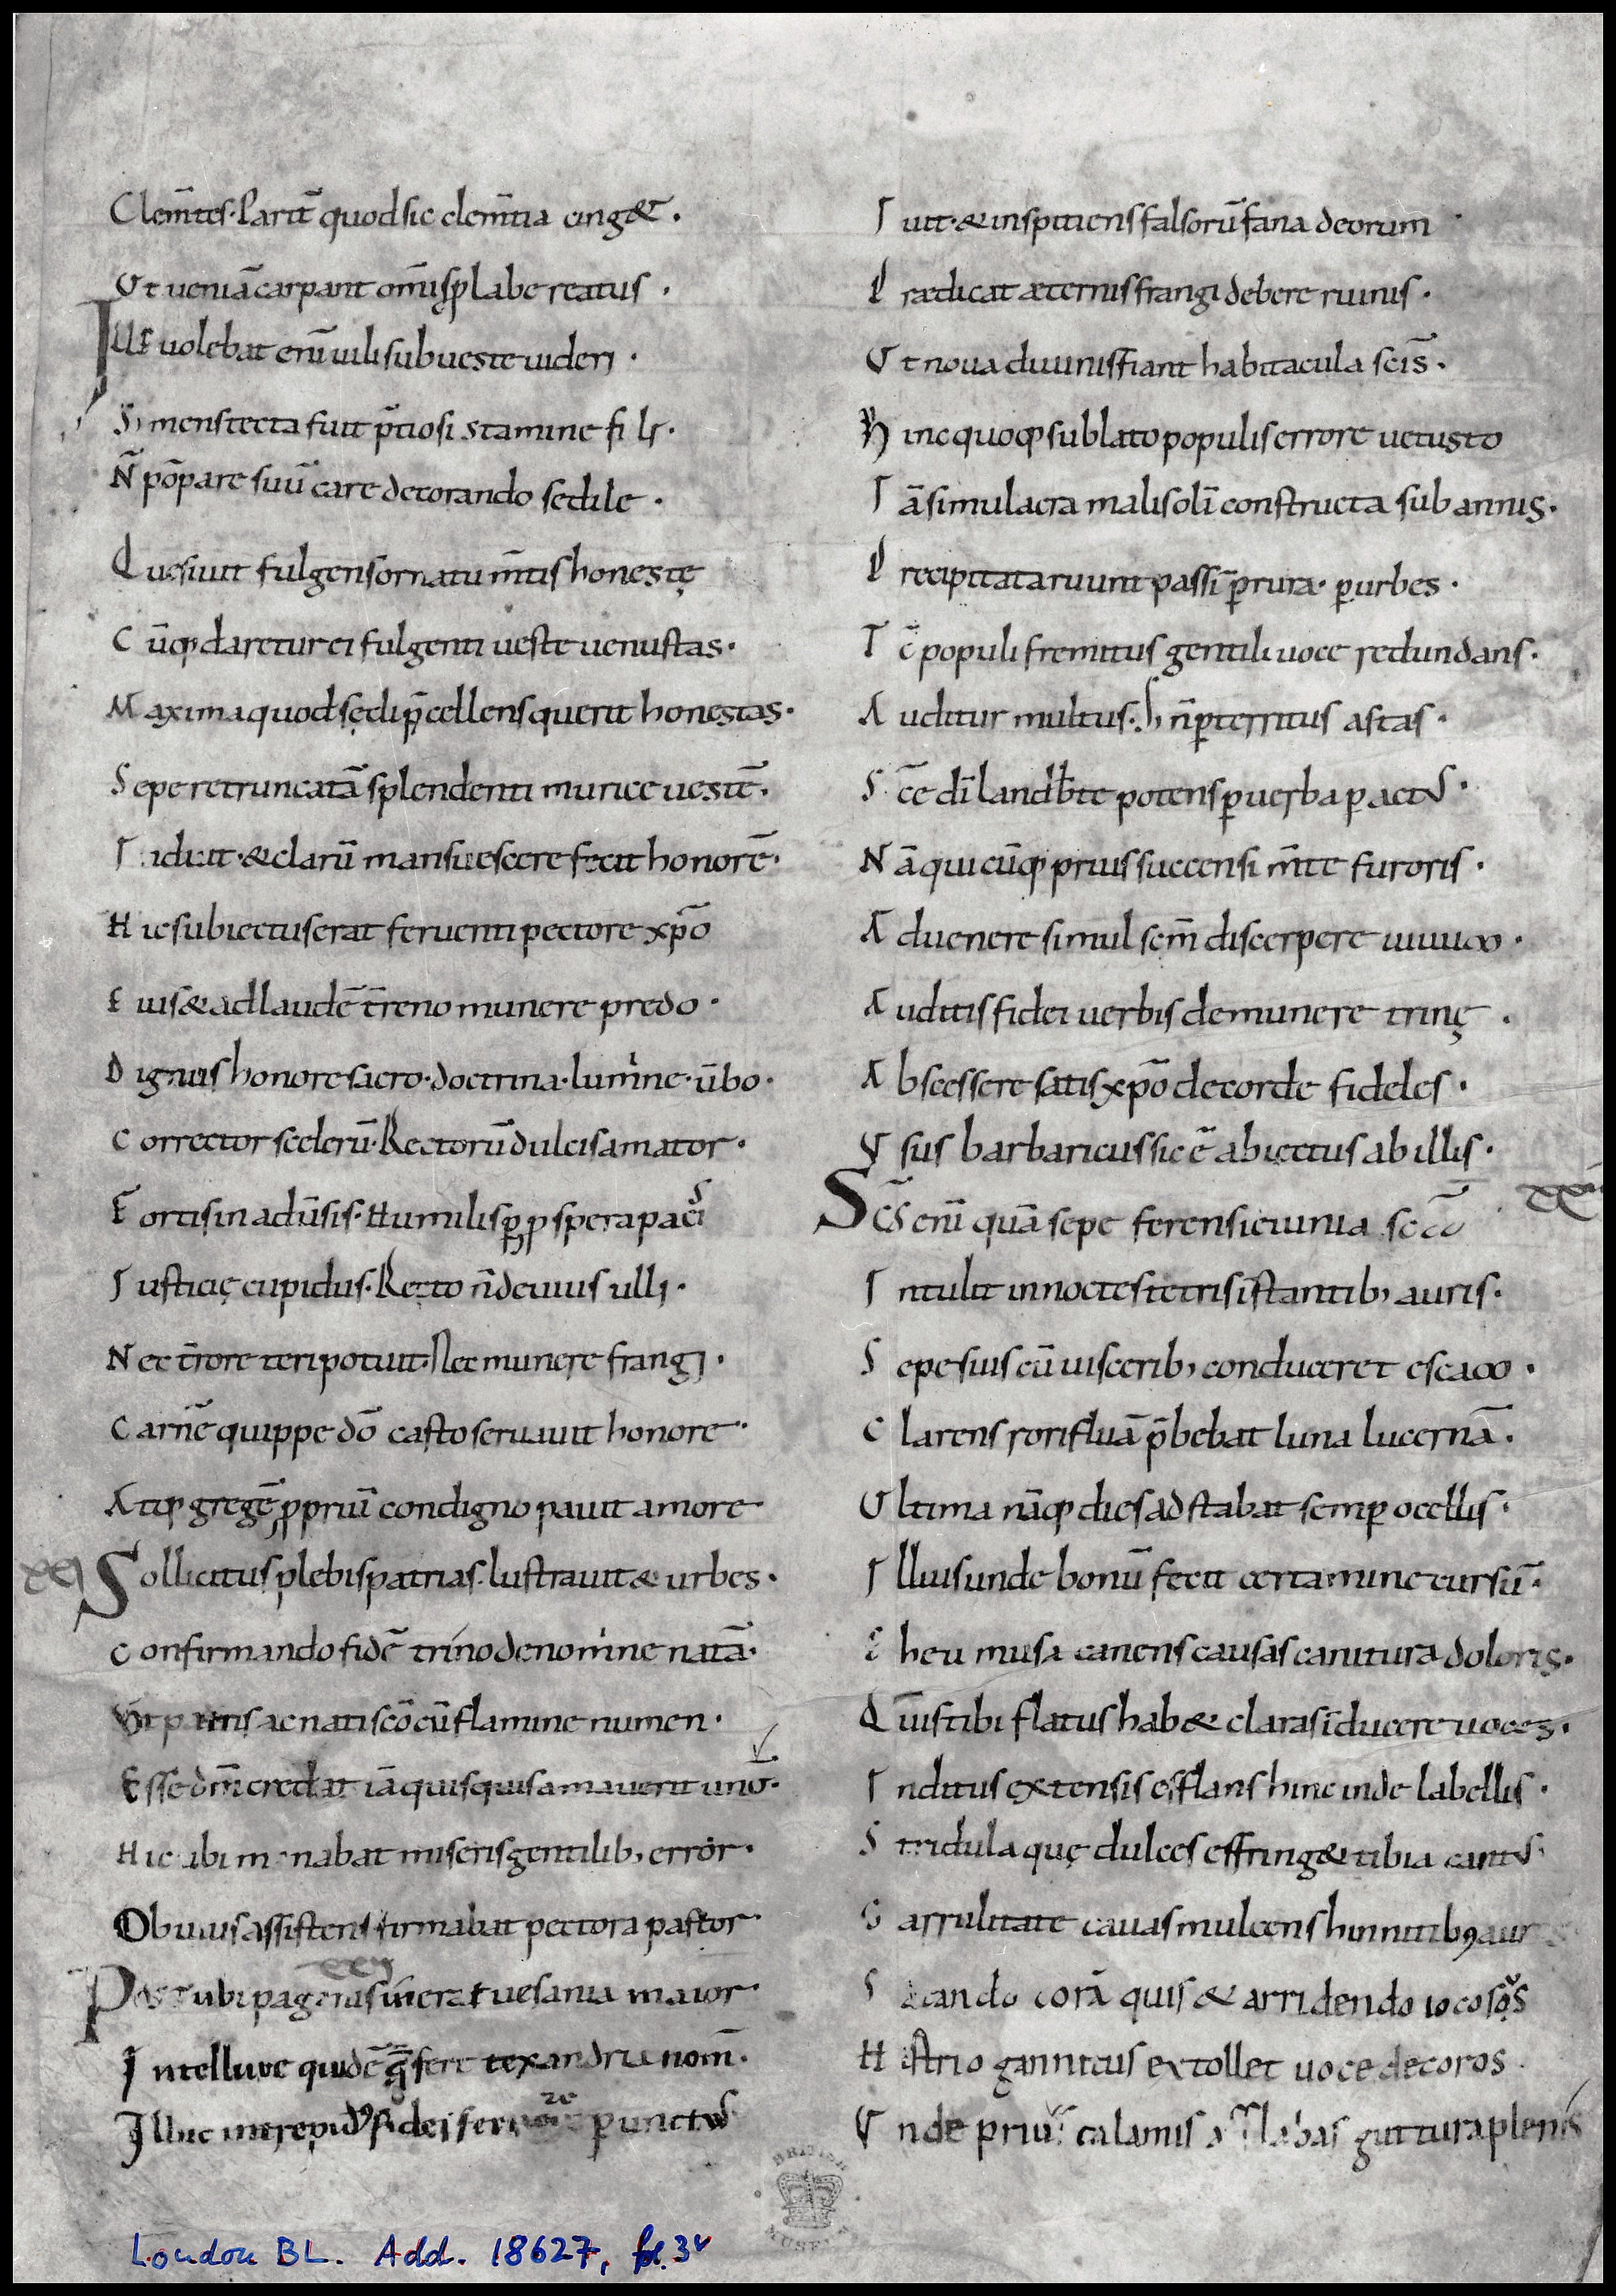 Clem̄tes. Parit̄ quod sic clem̄tia cing&.
Ut ueniā carpant om̄is p labe reatus.
Ille uolebat eni͂ uili sub ueste uideri.
Si mens tecta fuit p̄tiosi stamine fili.
N̄ pōpare suū care decorando sedile.
Quesiuit fulgens ornatu m̄tis honestę
Cūq; daretur ei fulgenti ueste uenustas.
Maxima quod sędi p̄cellens querit honestas.
Sepe retruncatā splendenti murice uestē.
Induit. & clarū mansuescere fecit honorē.
Hic subiectus erat feruenti pectore xp̄o
Euis& ad laudē t̄reno munere predo.
Dignus honore sacro. doctrina. lumine. ūbo.
Corrector scelerū. Rectorū dulcis amator.
Fortis in adūsis. Humilis p pspera pacis
Iusticię cupidus. Recto n̄ deuius ulli.
Nec t̄rore teri potuit. Nec munere frangi.
Carnē quippe dō casto seruauit honore.
Atq; gregē ppriū condigno pauit amore
xxi Sollicitus plebis patrias lustrauit & urbes.
Confirmando fidē trino de nomine natā.
Ut patris ac nati scō cū flamine numen.
Esse dm̄ credat iā quisquis amauerit unū.
Hic ubi manabat miseris gentilib; error.
Obuius assistens firmabat pectora pastor.
xxii
Post ubi paganis inerat uesania maior.
In tellure quidē q̄ fert texandria nom̄.
Illuc intrepidus fidei punctus
Iuit. & inspitiens falsorū fana deorum
Praedicat aeternis frangi debere ruinis.
Ut noua diuinis fiant habitacula scīs.
Hinc quoq; sublato populis errore uetusto
Iā simulacra mali solī constructa sub annis.
Precipitata ruunt passī p rura. p urbes.
Tc̄ populi fremitus gentili uoce redundans.
Auditur multus. h n̄ pterritus astas.
Sc̄e dī landb̄te potens p uerba p actus.
Nā quicūq; prius succensi m̄te furoris.
Aduenere simul scm̄ discerpere uiuum.
Auditis fidei uerbis de munere trinę.
Abscessere satis xp̄o de corde fideles.
Usus barbaricus sic ē abiectus ab illis.
Sc̄s eni͂ quā sepe ferens ieiunia
Intulit in noctes tetris īstantib; auris.
Sepe suis cū uiscerib; conduceret escam.
Clarens rorifluā p̄bebat luna lucernā.
Ultima nāq; dies adstabat semp ocellis.
Illius unde bonū fecit certamine cursū.
Eheu musa canens causas canitura doloris.
Quīs tibi flatus hab& claras īducere uoces.
Inditus extensis efflans hinc inde labellis.
Stridula quę dulces effring& tibia cantus.
Garrulitate cauas mulcens hinnitib; aur
corā quis & arridendo iocosos
Histrio gannitus extollet uoce decoros.
Unde prius calamis guttura plenis
London BL. Add. 18627, fol. 3v
BRITISH MUSEUM